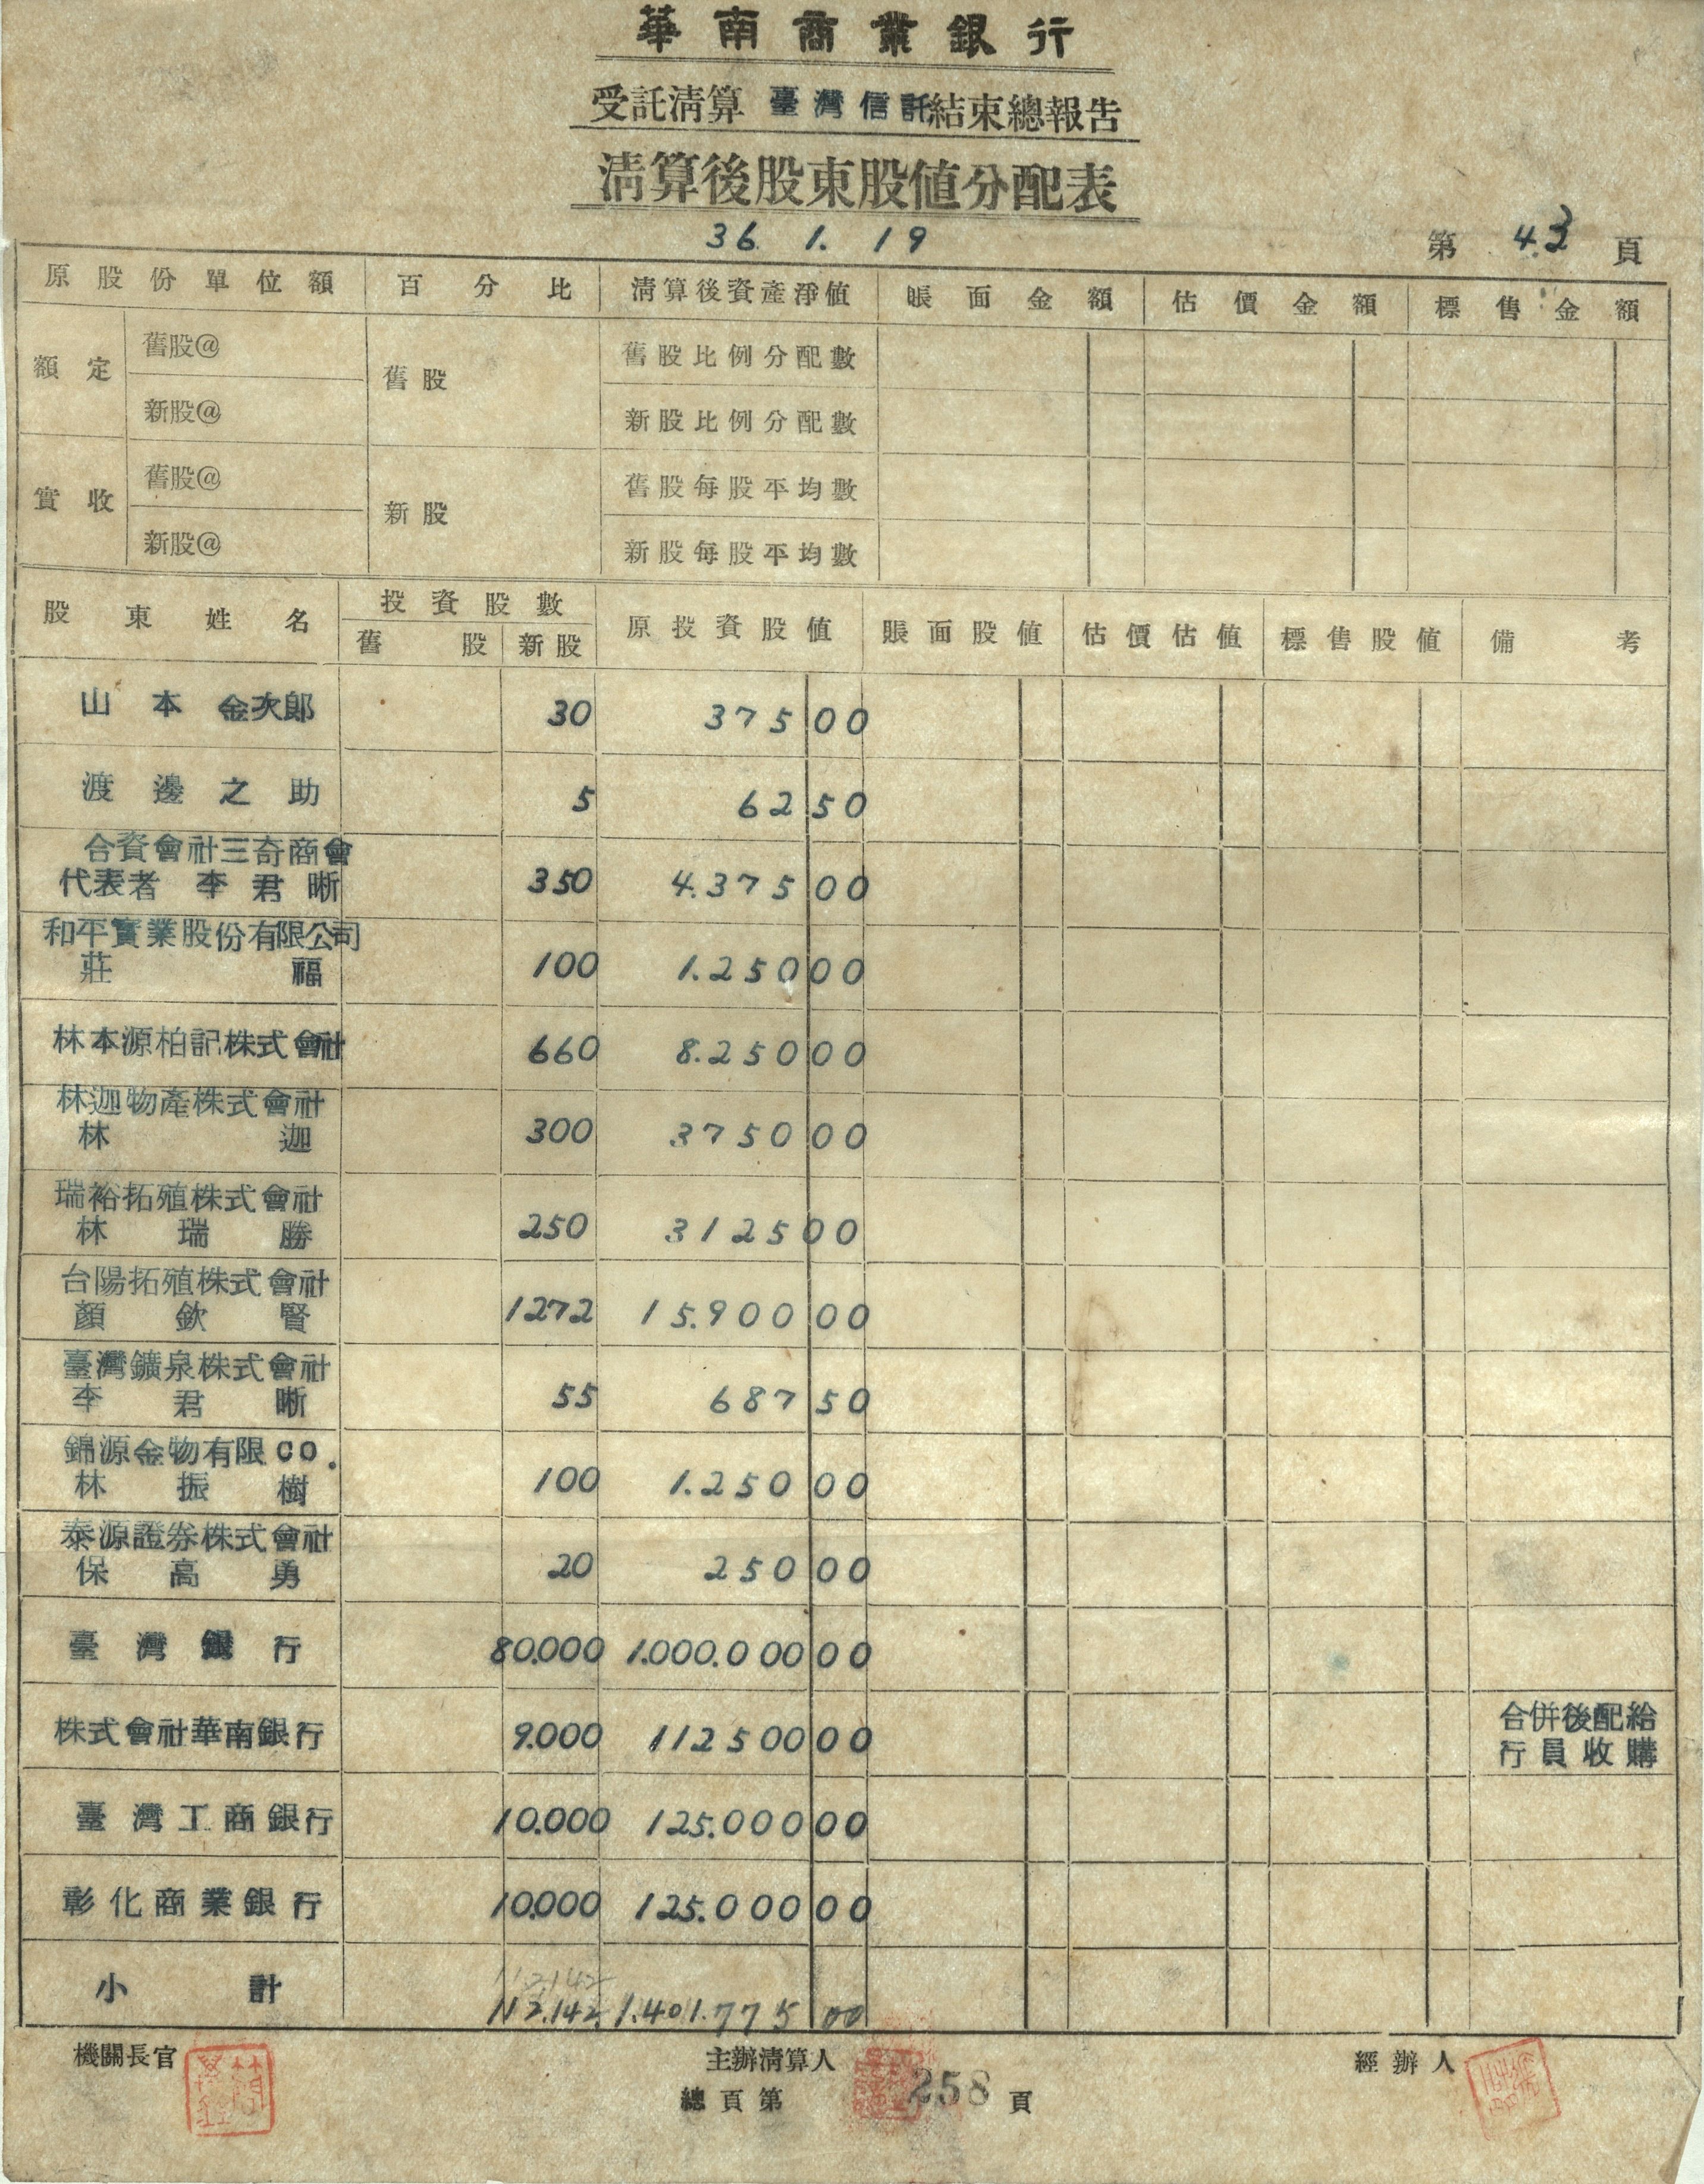 華南商業銀行
受託清算 臺灣信託結束總報告
清算後股東股值分配表
36. 1. 19
第 43 頁
原股份單位額 百分比 清算後資產淨值 賬面金額 估價金額 標售金額
額定 舊股@ 舊股 舊股比例分配數
新股@ 新股比例分配數
實收 舊股@ 新股 舊股每股平均數
新股@ 新股每股平均數
股東姓名 投資股數 原投資股值 賬面股值 估價估值 標售股值 備考
舊股 新股
山本金次郎 30 375 00
渡邊之助 5 62 50
合資會社三奇商會
代表者 李君晰 350 4.375 00
和平實業股份有限公司
莊福 100 1.250 00
林本源柏記株式會社 660 8.250 00
林迦物產株式會社
林迦 300 3750 00
瑞裕拓殖株式會社
林瑞勝 250 3125 00
台陽拓殖株式會社
顏欽賢 1272 15.900 00
臺灣鑛泉株式會社
李君晰 55 687 50
錦源金物有限CO.
林振樹 100 1.250 00
泰源證券株式會社
保高勇 20 250 00
臺灣銀行 80.000 1.000.000 00
株式會社華南銀行 9.000 112500 00 合併後配給
行員收購
臺灣工商銀行 10.000 125.000 00
彰化商業銀行 10.000 125.000 00
112.142
小計 112.142 1.401.775 00
機關長官 主辦清算人 經辦人
總頁第 258 頁